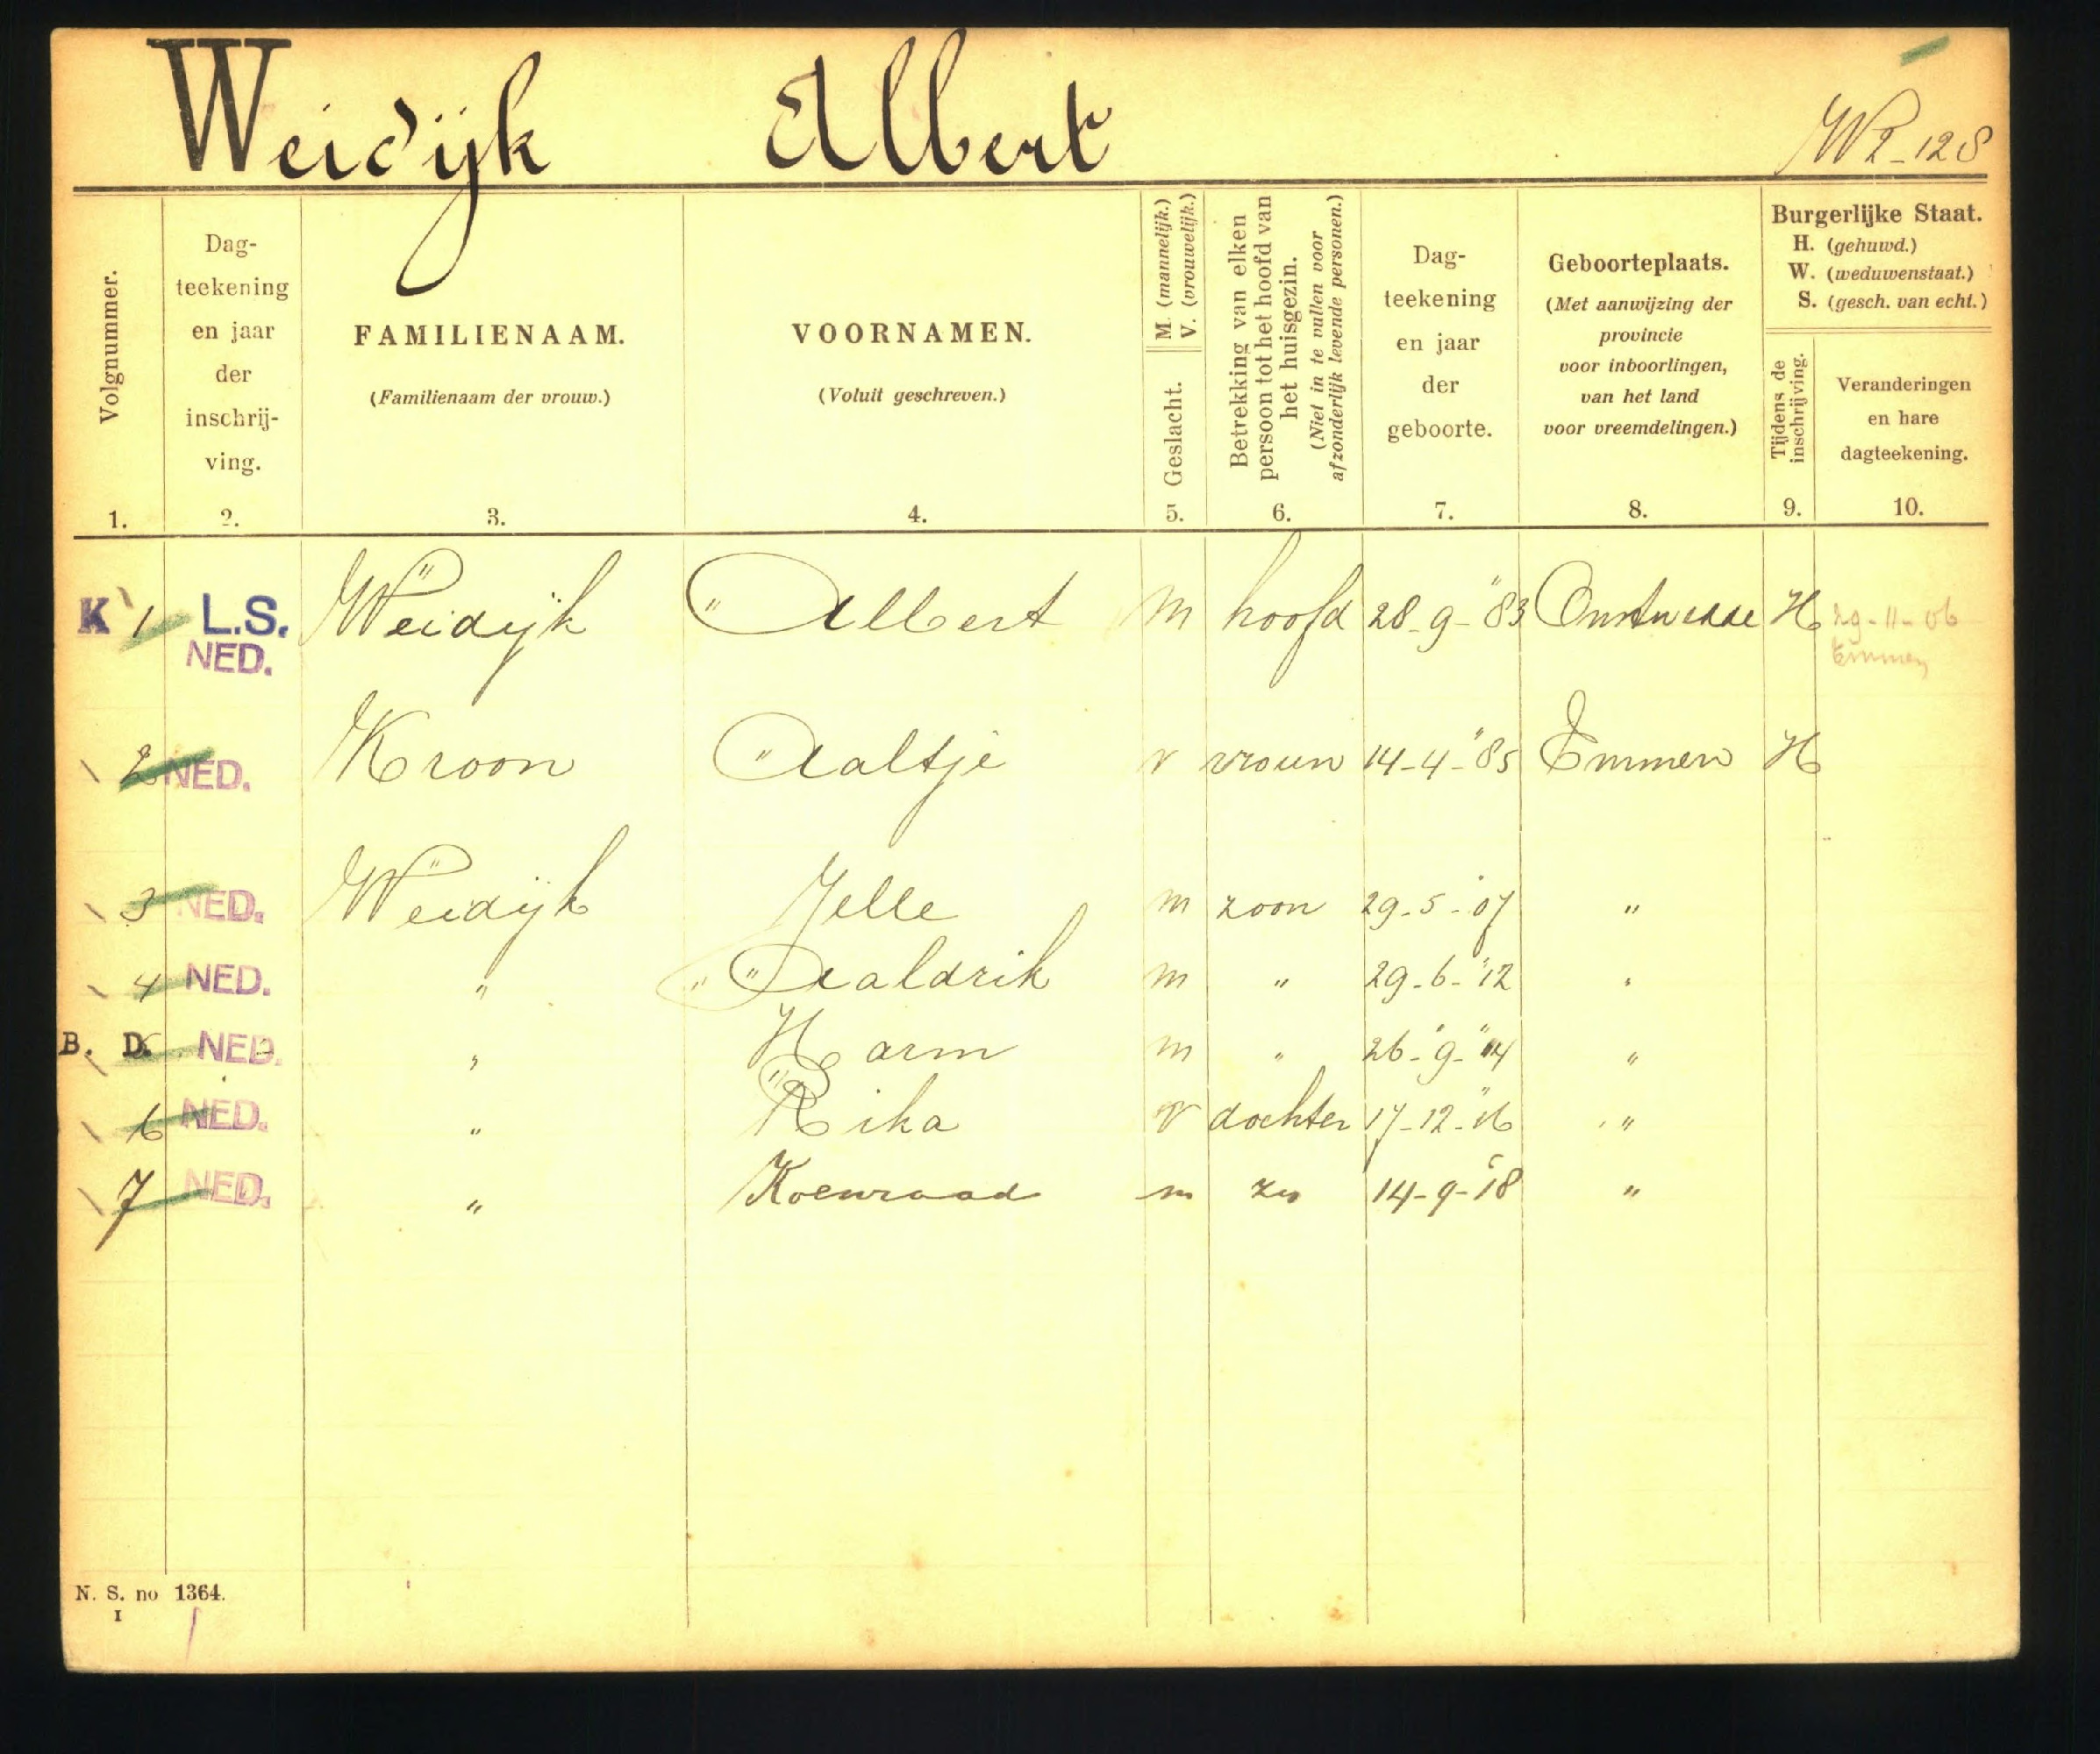 Weidijk Albert W2-128
Volgnummer.
1.
Dag-
teekening
en jaar
der
inschrij-
ving.
2.
FAMILIENAAM.
(Familienaam der vrouw.)
3.
VOORNAMEN.
(Voluit geschreven.)
4.
M. (mannelijk.)
V. (vrouwelijk.)
Geslacht.
5.
Betrekking van elken
persoon tot het hoofd van
het huisgezin.
(Niet in te vullen voor
afzonderlijk levende personen.)
6.
Dag-
teekening
en jaar
der
geboorte.
7.
Geboorteplaats.
(Met aanwijzing der
provincie
voor inboorlingen,
van het land
voor vreemdelingen.)
8.
Burgerlijke Staat.
H. (gehuwd.)
W. (weduwenstaat.)
S. (gesch. van echt.)
Tijdens de
inschrijving.
9.
Veranderingen
en hare
dagteekening.
10.
K 1 L.S. Weidijk Albert M hoofd 28-9-83 Onstwedde H 29-11-06
NED. Emmen
2 NED. Kroon Aaltje v vrouw 14-4-85 Emmen H
3 NED. Weidijk Jelle m zoon 29-5-07 "
4 NED. " Aaldrik m " 29-6-12 "
B. D. NED. " Harm m " 26-9-14 "
6 NED. " Rika v dochter 17-12-16 "
7 NED. " Koenraad m zn 14-9-18 "
N. S. no 1364.
I